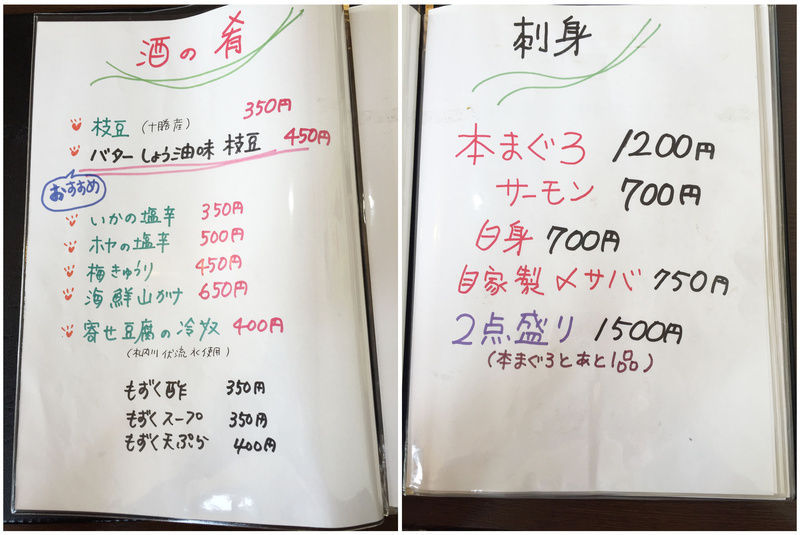 酒の肴
枝豆（十勝産） 350円
バターしょう油味 枝豆 450円
おすすめ
いかの塩辛 350円
ホヤの塩辛 500円
梅きゅうり 450円
海鮮山かけ 650円
寄せ豆腐の冷奴 400円
（札内川伏流水使用）
もずく酢 350円
もずくスープ 350円
もずく天ぷら 400円
刺身
本まぐろ 1200円
サーモン 700円
白身 700円
自家製〆サバ 750円
2点盛り 1500円
（本まぐろとあと1品）